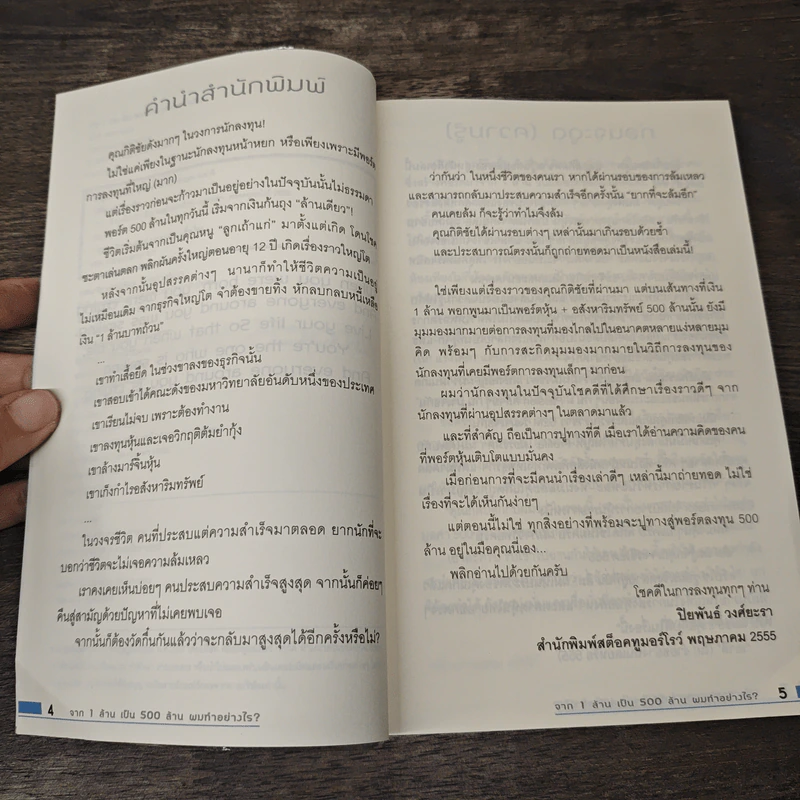 คำนำสำนักพิมพ์
คุณกิติชัยดังมากๆ ในวงการนักลงทุน!
ไม่ใช่แค่เพียงในฐานะนักลงทุนหน้าหยก หรือเพียงเพราะมีพอร์ต
การลงทุนที่ใหญ่ (มาก)
แต่เรื่องราวก่อนจะก้าวมาเป็นอยู่อย่างในปัจจุบันนั้นไม่ธรรมดา
พอร์ต 500 ล้านในทุกวันนี้ เริ่มจากเงินก้นถุง "ล้านเดียว"!
ชีวิตเริ่มต้นจากเป็นคุณหนู "ลูกเถ้าแก่" มาตั้งแต่เกิด โดนโชค
ชะตาเล่นตลก พลิกผันครั้งใหญ่ตอนอายุ 12 ปี เกิดเรื่องราวใหญ่โต
หลังจากนั้นอุปสรรคต่างๆ นานาก็ทำให้ชีวิตความเป็นอยู่
ไม่เหมือนเดิม จากธุรกิจใหญ่โต จำต้องขายทิ้ง หักลบกลบหนี้เหลือ
เงิน "1 ล้านบาทถ้วน"
...
เขาทำเสื้อยืด ในช่วงขาลงของธุรกิจนั้น
เขาสอบเข้าได้คณะดังของมหาวิทยาลัยอันดับหนึ่งของประเทศ
เขาเรียนไม่จบ เพราะต้องทำงาน
เขาลงทุนหุ้นและเจอวิกฤติต้มยำกุ้ง
เขาล้างมาร์จิ้นหุ้น
เขาเก็งกำไรอสังหาริมทรัพย์
...
ในวงจรชีวิต คนที่ประสบแต่ความสำเร็จมาตลอด ยากนักที่จะ
บอกว่าชีวิตจะไม่เจอความล้มเหลว
เราคงเคยเห็นบ่อยๆ คนประสบความสำเร็จสูงสุด จากนั้นก็ค่อยๆ
คืนสู่สามัญด้วยปัญหาที่ไม่เคยพบเจอ
จากนั้นก็ต้องวัดกึ๋นกันแล้วว่าจะกลับมาสูงสุดได้อีกครั้งหรือไม่?
4 จาก 1 ล้าน เป็น 500 ล้าน ผมทำอย่างไร?
ว่ากันว่า ในหนึ่งชีวิตของคนเรา หากได้ผ่านรอบของการล้มเหลว
และสามารถกลับมาประสบความสำเร็จอีกครั้งนั้น "ยากที่จะล้มอีก"
คนเคยล้ม ก็จะรู้ว่าทำไมจึงล้ม
คุณกิติชัยได้ผ่านรอบต่างๆ เหล่านั้นมาเกินรอบด้วยซ้ำ
และประสบการณ์ตรงนั้นก็ถูกถ่ายทอดมาเป็นหนังสือเล่มนี้!
ใช่เพียงแต่เรื่องราวของคุณกิติชัยที่ผ่านมา แต่บนเส้นทางที่เงิน
1 ล้าน พอกพูนมาเป็นพอร์ตหุ้น + อสังหาริมทรัพย์ 500 ล้านนั้น ยังมี
มุมมองมากมายต่อการลงทุนที่มองไกลไปในอนาคตหลายแง่หลายมุม
คิด พร้อมๆ กับการสะกิดมุมมองมากมายในวิถีการลงทุนของ
นักลงทุนที่เคยมีพอร์ตการลงทุนเล็กๆ มาก่อน
ผมว่านักลงทุนในปัจจุบันโชคดีที่ได้ศึกษาเรื่องราวดีๆ จาก
นักลงทุนที่ผ่านอุปสรรคต่างๆ ในตลาดมาแล้ว
และที่สำคัญ ถือเป็นการปูทางที่ดี เมื่อเราได้อ่านความคิดของคน
ที่พอร์ตหุ้นเติบโตแบบมั่นคง
เมื่อก่อนการที่จะมีคนนำเรื่องเล่าดีๆ เหล่านี้มาถ่ายทอด ไม่ใช่
เรื่องที่จะได้เห็นกันง่ายๆ
แต่ตอนนี้ไม่ใช่ ทุกสิ่งอย่างที่พร้อมจะปูทางสู่พอร์ตลงทุน 500
ล้าน อยู่ในมือคุณนี่เอง...
พลิกอ่านไปด้วยกันครับ
โชคดีในการลงทุนทุกๆ ท่าน
ปิยพันธ์ วงศ์ยะรา
สำนักพิมพ์สต็อคทูมอร์โรว์ พฤษภาคม 2555
จาก 1 ล้าน เป็น 500 ล้าน ผมทำอย่างไร? 5